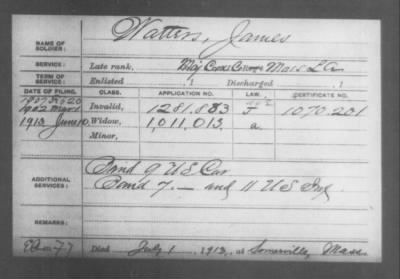 NAME OF SOLDIER: Watters, James
SERVICE: Late rank, Mass
TERM OF SERVICE: Enlisted , 1 Discharged , 1
DATE OF FILING. CLASS. APPLICATION NO. LAW. CERTIFICATE NO.
1907
1902 Invalid, 1281.883 1070.201
1913 June 10, Widow, 1,011,013. a.
Minor,
ADDITIONAL SERVICES: Band 9 U S Cav
Band 7. — and 11 U S Inf.
REMARKS:
Died July 1 1913, at Somerville, Mass.